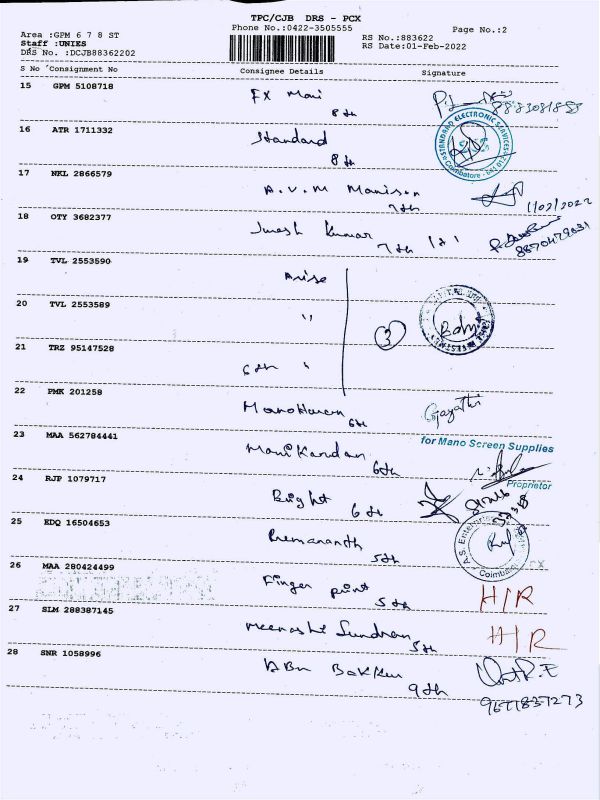 TPC/CJB DRS - PCX
Phone No.:0422-3505555
Page No.:2
Area :GPM 6 7 8 ST
Staff :UNIES
DRS No. :DCJB88362202
RS No.:883622
RS Date:01-Feb-2022
S No Consignment No Consignee Details Signature
15 GPM 5108718 FX Mani
8th
16 ATR 1711332 Standard
8th
STANDARD ELECTRONIC SERVICES
Coimbatore - 641 012
17 NKL 2866579 A.V.M Manison
7th
1/02/2022
18 OTY 3682377 Kumar
7th
19 TVL 2553590 Arise
20 TVL 2553589 "
3
21 TRZ 95147528 6th "
22 PMK 201258 Manoharan
6th
Gayathri
23 MAA 562784441 Manikandan
6th
for Mano Screen Supplies
Proprietor
24 RJP 1079717 Bright 6th
25 EDQ 16504653 Premananth
5th
A.S. Enter
Coimba
26 MAA 280424499 Finger print
5th
H/R
27 SLM 288387145 Meenashi Sundram
5th
H/R
28 SNR 1058996 ABu Bakker
9th